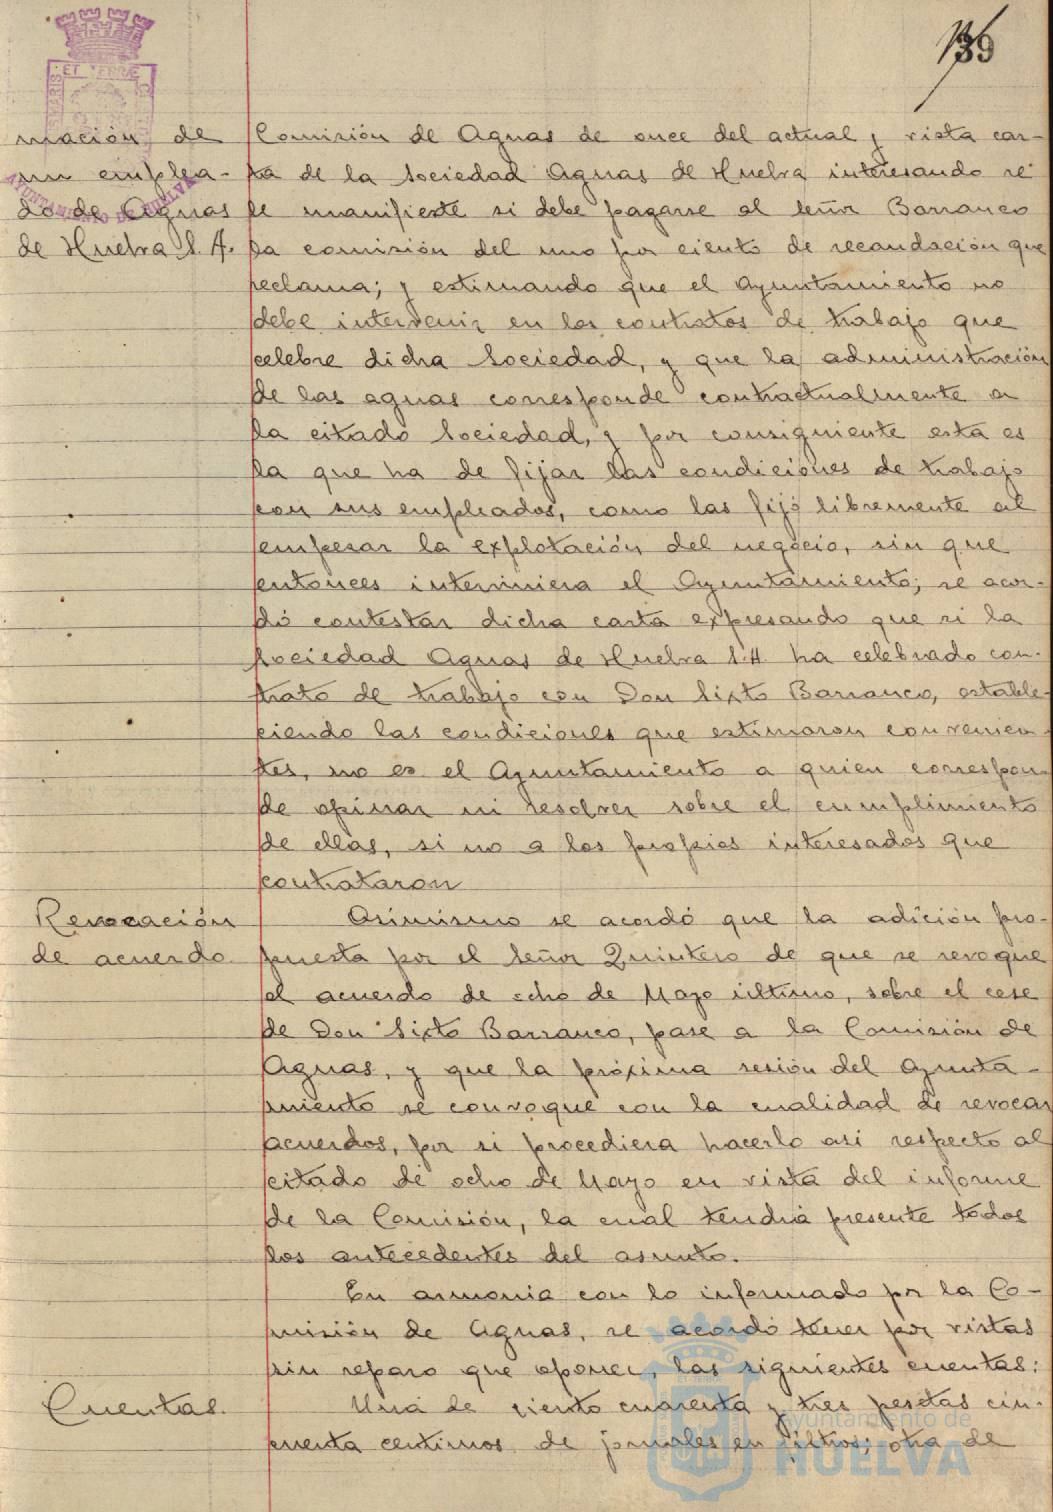 139
mación de
un emplea-
do de Aguas
de Huelva S. A.
Comisión de Aguas de once del actual y vista car-
ta de la Sociedad Aguas de Huelva interesando se
le manifieste si debe pagarse al Señor Barranco
la comisión del uno por ciento de recaudación que
reclama; y estimando que el Ayuntamiento no
debe intervenir en los contratos de trabajo que
celebre dicha Sociedad, y que la administración
de las aguas corresponde contractualmente a
la citada Sociedad, y por consiguiente esta es
la que ha de fijar las condiciones de trabajo
con sus empleados, como las fijó libremente al
empezar la explotación del negocio, sin que
entonces interviniera el Ayuntamiento; se acor-
dó contestar dicha carta expresando que si la
Sociedad Aguas de Huelva S.A. ha celebrado con-
trato de trabajo con Don Sixto Barranco, estable-
ciendo las condiciones que estimaron convenien-
tes, no es el Ayuntamiento a quien correspon-
de opinar ni resolver sobre el cumplimiento
de ellas, si no a los propios interesados que
contrataron
Revocación
de acuerdo.
Asimismo se acordó que la adición pro-
puesta por el Señor Quintero de que se revoque
el acuerdo de ocho de Mayo último, sobre el cese
de Don Sixto Barranco, pase a la Comisión de
Aguas, y que la próxima sesión del Ayunta-
miento se convoque con la cualidad de revocar
acuerdos, por si procediera hacerlo asi respecto al
citado de ocho de Mayo en vista del informe
de la Comisión, la cual tendrá presente todos
los antecedentes del asunto.
En armonia con lo informado por la Co-
misión de Aguas, se acordó tener por vistas
sin reparo que oponer, las siguientes cuentas:
Cuentas.
Una de ciento cuarenta y tres pesetas cin-
cuenta centimos de jornales en filtros; otra de
AYUNTAMIENTO DE HUELVA
Ayuntamiento de
HUELVA